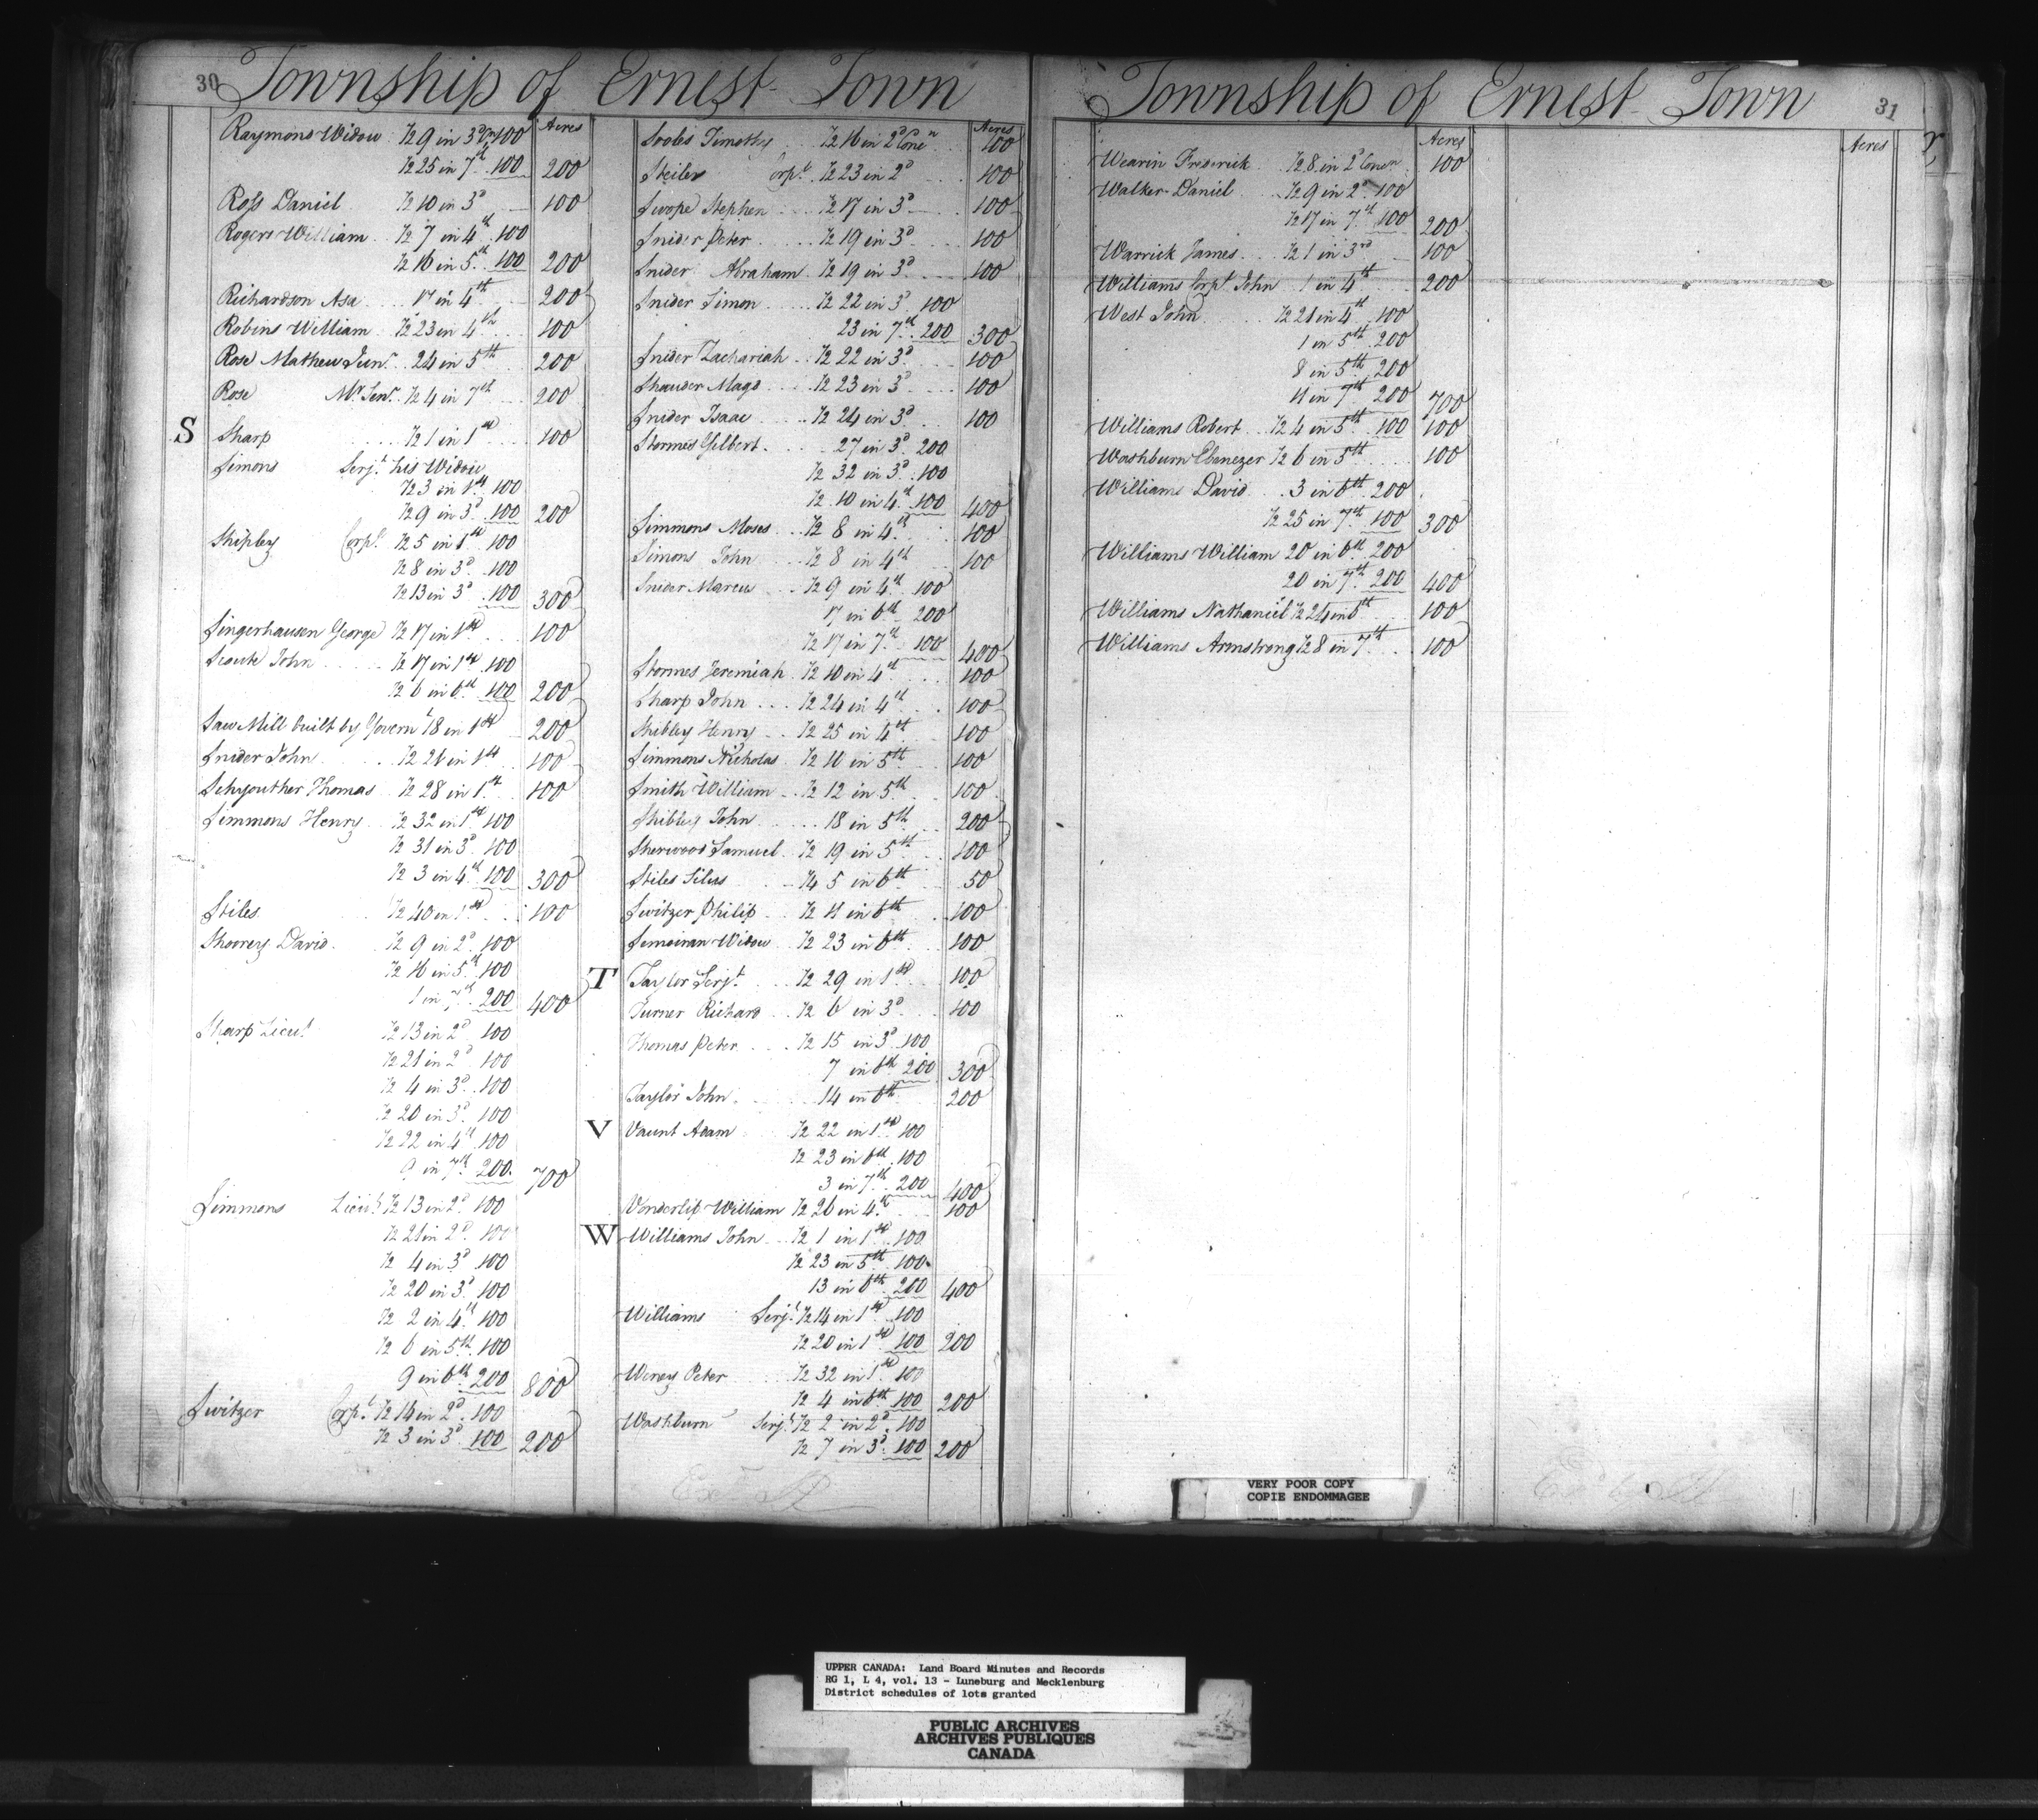 30 Township of Ernest Town
Acres
Raymond Widow ½ 9 in 3d Con 100
½ 25 in 7th 100 200
Ross Daniel ½ 10 in 3d 100
Rogers William ½ 7 in 4th 100
½ 16 in 5th 100 200
Richardson Asa 17 in 4th 200
Robins William ½ 23 in 4th 100
Rose Mathew Junr 24 in 5th 200
Rose Mw Senr ½ 4 in 7th 200
S
Sharp ½ 1 in 1st 100
Simons Serjt his Widow
½ 3 in 1st 100
½ 9 in 3d 100 200
Shipley Corpl ½ 5 in 1st 100
½ 8 in 3d 100
½ 13 in 3d 100 300
Singerhausen George ½ 17 in 1st 100
John ½ 17 in 1st 100
½ 6 in 6th 100 200
Saw Mill built by Governt 18 in 1st 200
Snider John ½ 21 in 1st 100
Schyouther Thomas ½ 28 in 1st 100
Simmons Henry ½ 32 in 1st 100
½ 31 in 3d 100
½ 3 in 4th 100 300
Stiles ½ 40 in 1st 100
Shorey David ½ 9 in 2d 100
½ 16 in 5th 100
1 in 7th 200 400
Sharp Lieut ½ 13 in 2d 100
½ 21 in 2d 100
½ 4 in 3d 100
½ 20 in 3d 100
½ 22 in 4th 100
9 in 7th 200 700
Simmons Lieut ½ 13 in 2d 100
½ 21 in 2d 100
½ 4 in 3d 100
½ 20 in 3d 100
½ 2 in 4th 100
½ 6 in 5th 100
9 in 6th 200 800
Switzer Corpl ½ 14 in 2d 100
½ 3 in 3d 100 200
Acres
Timothy ½ 16 in 2d Conn 100
Steiler Corpl ½ 23 in 2d 100
Swope Stephen ½ 17 in 3d 100
Snider Peter ½ 19 in 3d 100
Snider Abraham ½ 19 in 3d 100
Snider Simon ½ 22 in 3d 100
23 in 7th 200 300
Snider Zachariah ½ 22 in 3d 100
Magd ½ 23 in 3d 100
Snider Isaac ½ 24 in 3d 100
Stormes Gilbert 27 in 3d 200
½ 32 in 3d 100
½ 10 in 4th 100 400
Simmons Moses ½ 8 in 4th 100
Simons John ½ 8 in 4th 100
Snider Marcu ½ 9 in 4th 100
17 in 6th 200
½ 17 in 7th 100 400
Stormes Jeremiah ½ 10 in 4th 100
Sharp John ½ 24 in 4th 100
Shibley Henry ½ 25 in 4th 100
Simmons Nicholas ½ 10 in 5th 100
Smith William ½ 12 in 5th 100
Shibley John 18 in 5th 200
Sherwood Samuel ½ 19 in 5th 100
Stiles Silus ¼ 5 in 6th 50
Switzer Philip ½ 11 in 6th 100
Widow ½ 23 in 6th 100
T
Taylor Serjt ½ 29 in 1st 100
Turner Richard ½ 6 in 3d 100
Thomas Peter ½ 15 in 3d 100
7 in 6th 200 300
Taylor John 14 in 6th 200
V
Vaunt Adam ½ 22 in 1st 100
½ 23 in 6th 100
3 in 7th 200 400
Vanderlip William ½ 26 in 4th 100
W
Williams John ½ 1 in 1st 100
½ 23 in 5th 100
13 in 6th 200 400
Williams Serjt ½ 14 in 1st 100
½ 20 in 1st 100 200
Weney Peter ½ 32 in 1st 100
½ 4 in 6th 100 200
Washburn Serjt ½ 2 in 2d 100
½ 7 in 3d 100 200
Township of Ernest Town 31
Acres
Acres
Wearin Frederick ½ 8 in 2d Conn 100
Walker Daniel ½ 9 in 2d 100
½ 17 in 7th 100 200
Warrick James ½ 1 in 3rd 100
Williams Corpl John 1 in 4th 200
West John ½ 21 in 4th 100
1 in 5th 200
8 in 5th 200
11 in 7th 200 700
Williams Robert ½ 4 in 5th 100 100
Washburn Ebenezer ½ 6 in 5th 100
Williams David 3 in 6th 200
½ 25 in 7th 100 300
Williams William 20 in 6th 200
20 in 7th 200 400
Williams Nathaniel ½ 24 in 6th 100
Williams Armstrong ½ 8 in 7th 100
VERY POOR COPY
COPIE ENDOMMAGEE
UPPER CANADA: Land Board Minutes and Records
RG 1, L 4, vol. 13 - Luneburg and Mecklenburg
District schedules of lots granted
PUBLIC ARCHIVES
ARCHIVES PUBLIQUES
CANADA